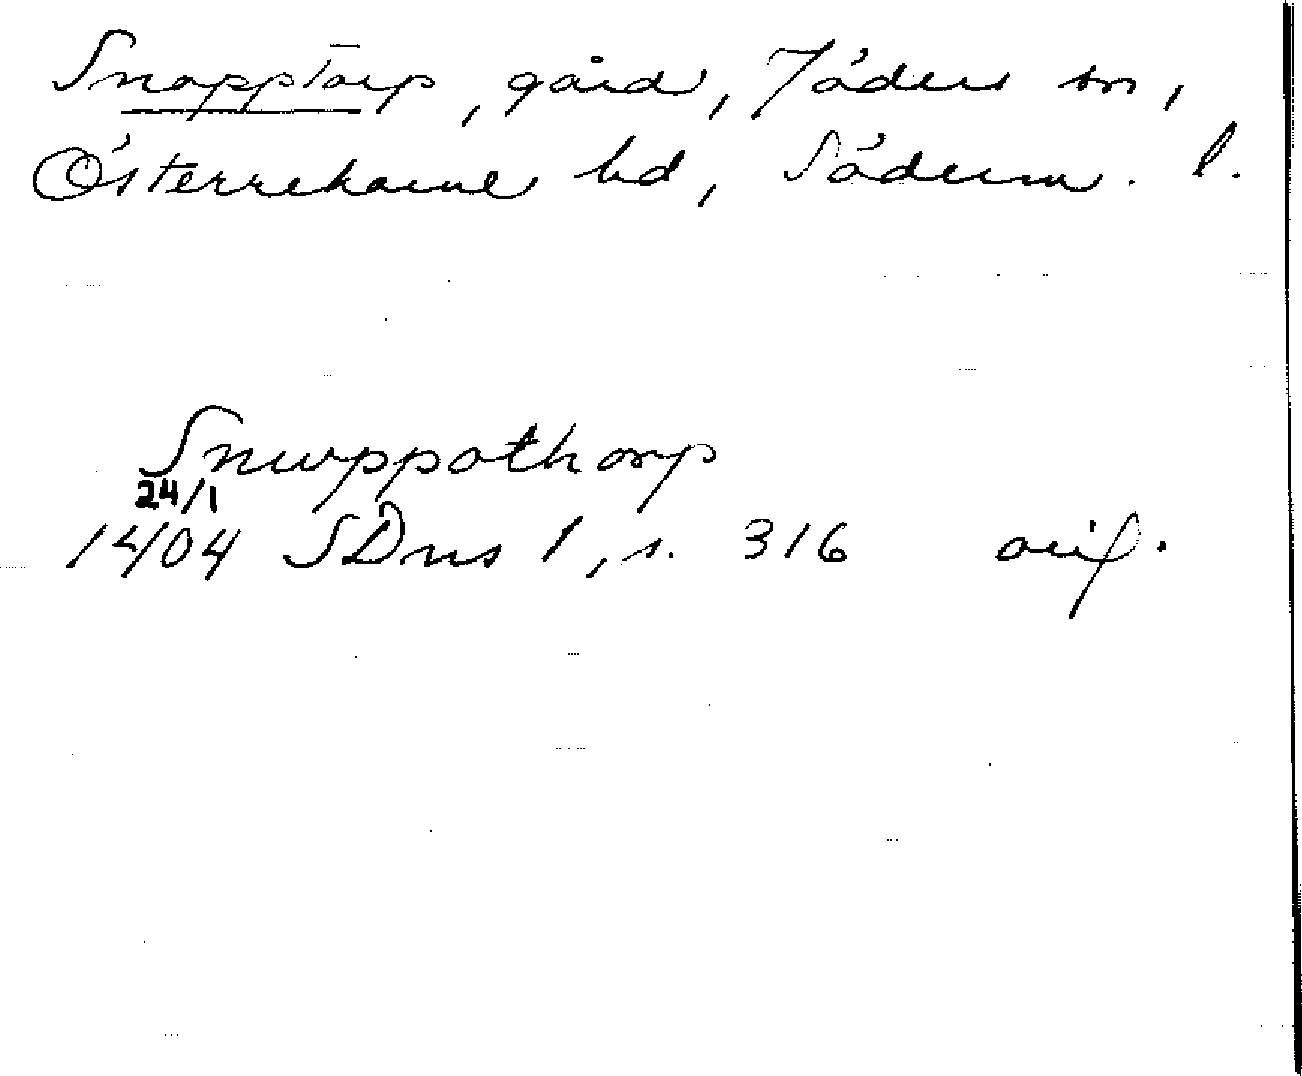 Snopptorp, gård, Jäders sn,
Österrekarne hd, Söderm. l.
Snwppothorp
24/1
1404 SDns 1, s. 316 orig.